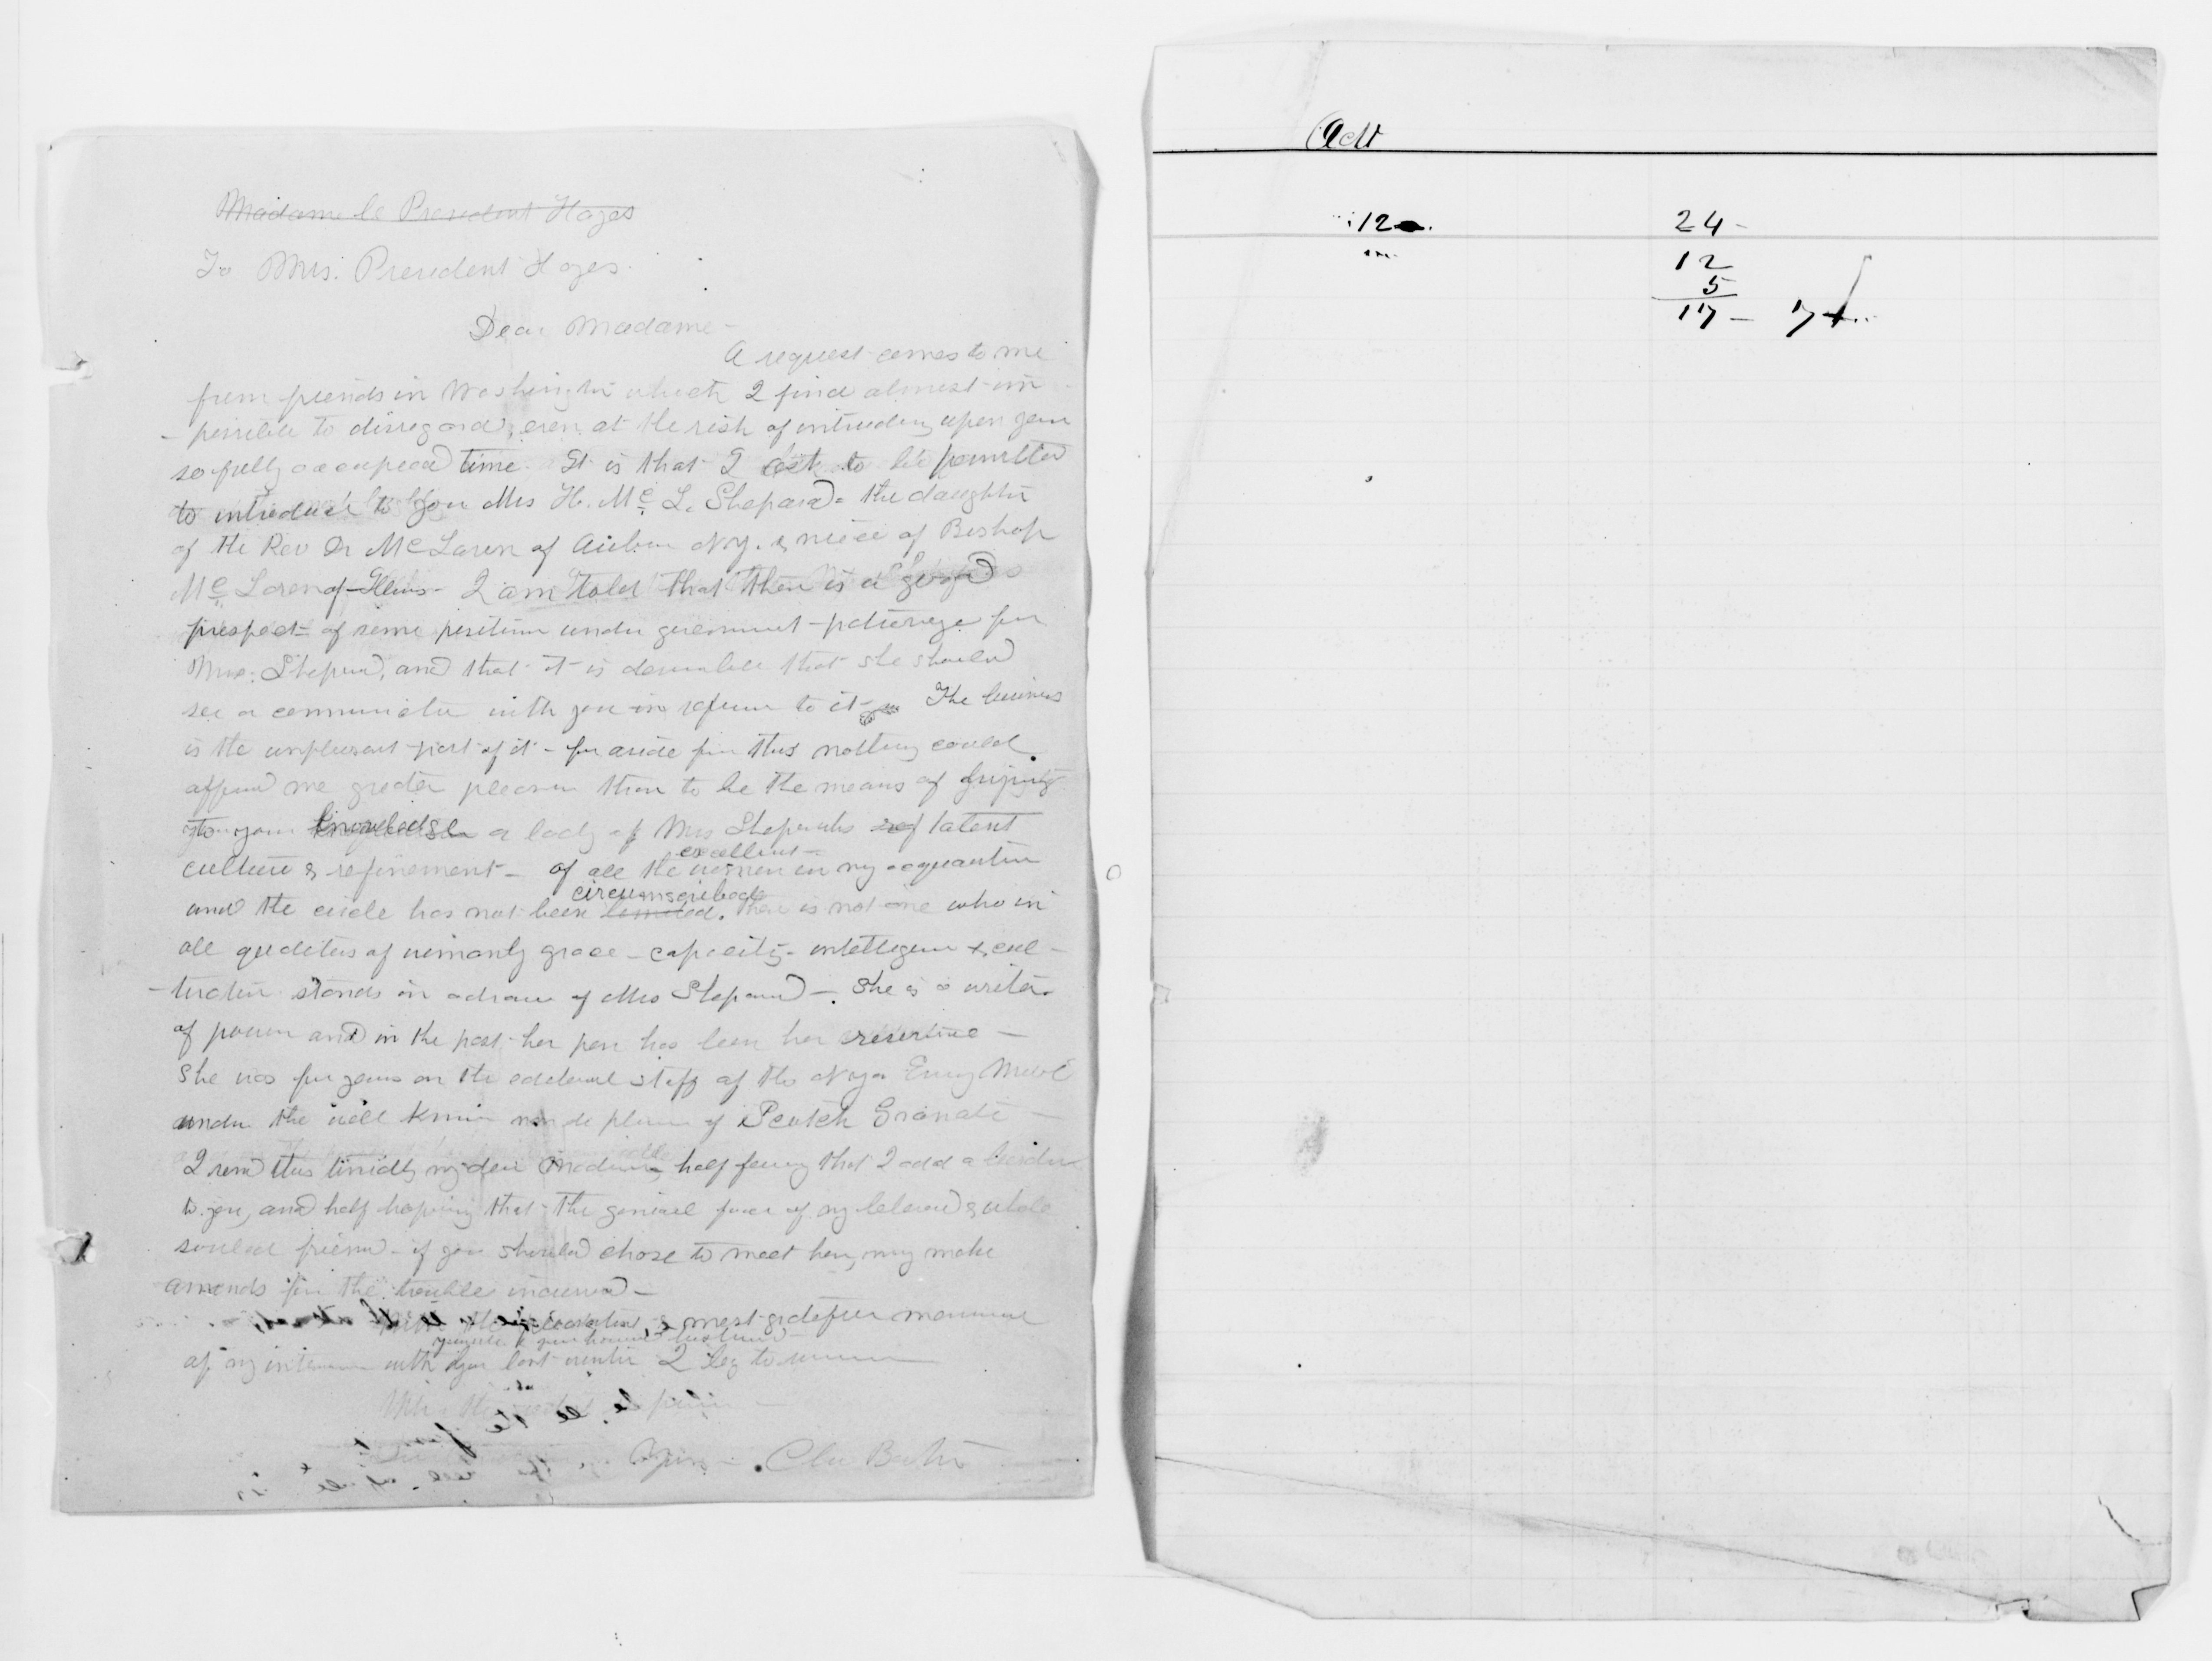 Madame le President Hayes
To Mrs. President Hayes.
Dear Madame -
A request comes to me
from friends in Washington which I find almost im
- possible to disregard, even at the risk of intruding upon your
so fully occupied time. It is that I ask to be permitted
to introduce to you Mrs H. Mc L. Shepard - the daughter
of the Rev Dr McLaren of Auburn N.Y. & niece of Bishop
Mc Laren of Illinois - I am told that there is a good
prospect of some position under government patronage for
Mrs. Shepard, and that it is desirable that she should
see or communicate with you in reference to it - The business
is the unpleasant part of it - for aside from this nothing could
afford me greater pleasure than to be the means of bringing
to your knowledge a lady of Mrs Shepards ref talent
culture & refinement - of all the excellent women in my acquaintance
and the circle has not been limited. circumscribed there is not one who in
all qualities of womanly grace - capacity - intelligence & cul -
- tivation stands in advance of Mrs Shepard -. She is a writer
of power and in the past her pen has been her resource -
She was for years on the editorial staff of the N.Y. Evening Mail
under the well known nom de plume of Scotch Granite -
I send this timidly my dear Madame, half fearing that I add a burden
to you, and half hoping that the genial face of my beloved & whole
souled friend - if you should chose to meet her, may make
amends for the trouble incurred -
most grateful
of my interview with your last winter I beg to
Yours Clara Barton
Act
12
24 -
12
5
17 - 7